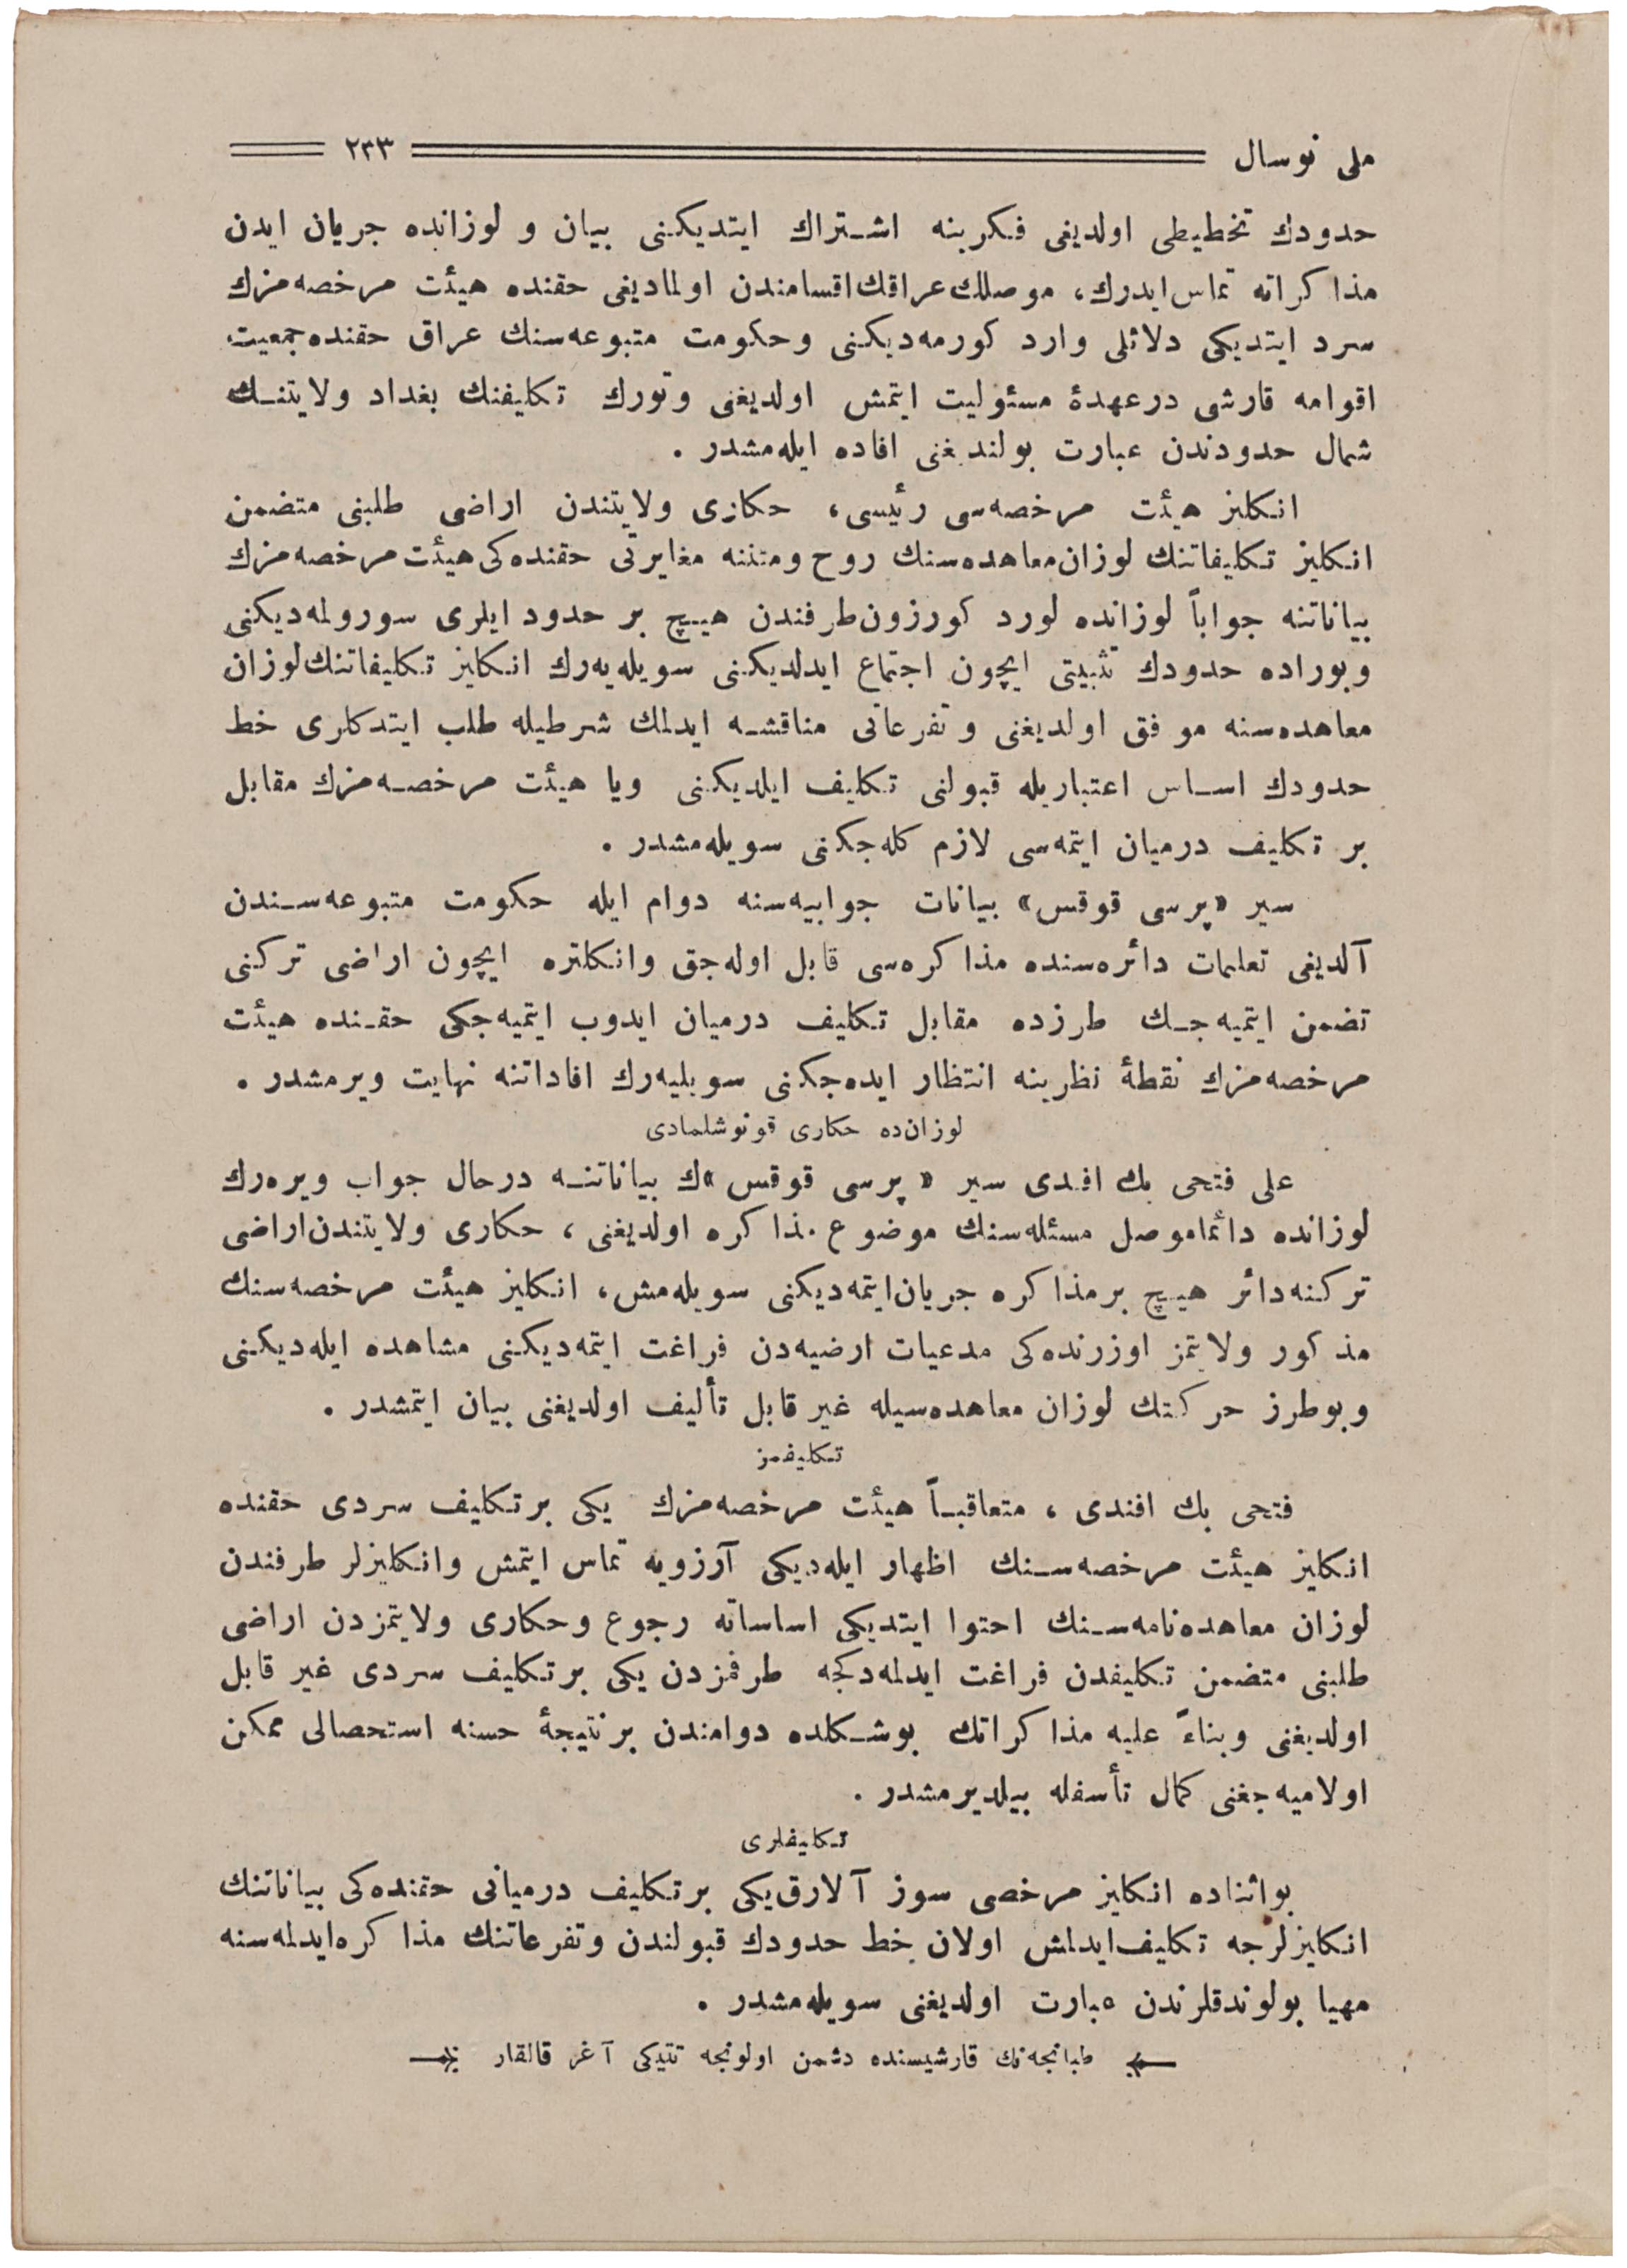 ملی نوسال ٢٣٣
حدودك تخطیطی اولدیغی فكرینه اشتراك ایتدیكنی بیان و لوزانده جریان ایدن
مذاكراته تماس ایدرك، موصلك عراقك اقسامندن اولمادیغی حقنده هیئت مرخصه‌مزك
سرد ایتدیكی دلائلی وارد كورمه‌دیكنی وحكومت متبوعه‌سنك عراق حقنده جمعیت
اقوامه قارشی درعهدهٔ مسئولیت ایتمش اولدیغنی وتورك تكلیفنك بغداد ولایتنك
شمال حدودندن عبارت بولندیغنی افاده ایله‌مشدر .
انكلیز هیئت مرخصه‌سی رئیسی، حكاری ولایتندن اراضی طلبنی متضمن
انكلیز تكلیفاتنك لوزان معاهده‌سنك روح ومتننه مغایرتی حقنده‌كی هیئت مرخصه‌مزك
بیاناتنه جواباً لوزانده لورد كورزون طرفندن هیچ بر حدود ایلری سورولمه‌دیكنی
وبوراده حدودك تثبیتی ایچون اجتماع ایدلدیكنی سویله‌یه‌رك انكلیز تكلیفاتنك لوزان
معاهده‌سنه موفق اولدیغنی وتفرعاتی مناقشه ایدلمك شرطیله طلب ایتدكلری خط
حدودك اساس اعتباریله قبولنی تكلیف ایلدیكنی ویا هیئت مرخصه‌مزك مقابل
بر تكلیف درمیان ایتمه‌سی لازم كله‌جكنی سویله‌مشدر .
سیر «پرسی قوقس» بیانات جوابیه‌سنه دوام ایله حكومت متبوعه‌سندن
آلدیغی تعلیمات دائره‌سنده مذاكره‌سی قابل اوله‌جق وانكلتره ایچون اراضی تركنی
تضمن ایتمیه‌جك طرزده مقابل تكلیف درمیان ایدوب ایتمیه‌جكی حقنده هیئت
مرخصه‌مزك نقطهٔ نظرینه انتظار ایده‌جكنی سویلیه‌رك افاداتنه نهایت ویرمشدر .
لوزان‌ده حكاری قونوشلمادی
علی فتحی بك افندی سیر «پرسی قوقس»ك بیاناتنه درحال جواب ویره‌رك
لوزانده دائما موصل مسئله‌سنك موضوع مذاكره اولدیغنی ، حكاری ولایتندن اراضی
تركنه دائر هیچ برمذاكره جریان ایتمه‌دیكنی سویله‌مش، انكلیز هیئت مرخصه‌سنك
مذكور ولایتمز اوزرنده‌كی مدعیات ارضیه‌دن فراغت ایتمه‌دیكنی مشاهده ایله‌دیكنی
وبوطرز حركتك لوزان معاهده‌سیله غیر قابل تألیف اولدیغنی بیان ایتمشدر .
تكلیفمز
فتحی بك افندی ، متعاقباً هیئت مرخصه‌مزك یكی برتكلیف سردی حقنده
انكلیز هیئت مرخصه‌سنك اظهار ایله‌دیكی آرزویه تماس ایتمش وانكلیزلر طرفندن
لوزان معاهده‌نامه‌سنك احتوا ایتدیكی اساساته رجوع وحكاری ولایتمزدن اراضی
طلبنی متضمن تكلیفدن فراغت ایدلمه‌دكجه طرفمزدن یكی برتكلیف سردی غیر قابل
اولدیغنی وبناءً علیه مذاكراتك بوشكلده دوامندن برنتیجهٔ حسنه استحصالی ممكن
اولامیه‌جغنی كمال تأسفله بیلدیرمشدر .
تكلیفلری
بواثناده انكلیز مرخصی سوز آلارق یكی برتكلیف درمیانی حقنده‌كی بیاناتنك
انكلیزلرجه تكلیف ایدلمش اولان خط حدودك قبولندن وتفرعاتنك مذاكره ایدلمه‌سنه
مهیا بولوندقلرندن عبارت اولدیغنی سویله‌مشدر .
طبانجه‌نك قارشیسنده دشمن اولونجه تتیكی آغر قالقار